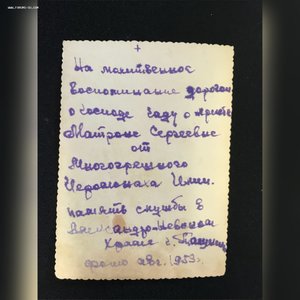 +
На молитвенное
воспоминание дорогой
о Господе чаду о Христе
Матроне Сергеевне
от
Многогрешного
Иеромонаха Илии.
память службы в
Александро-Невском
Храме г.
фото авг. 1953г.